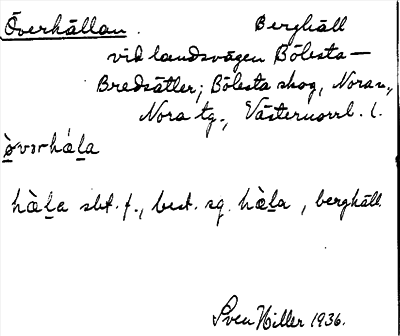 Överhällan. Berghäll
vid landsvägen Bölesta—
Bredsätter; Bölesta skog, Nora sn.,
Nora tg., Västernorrl. l.
ò̱vərhá̱la
hàḻa sbt. f., best. sg. hàḻa, berghäll.
Sven Hiller 1936.